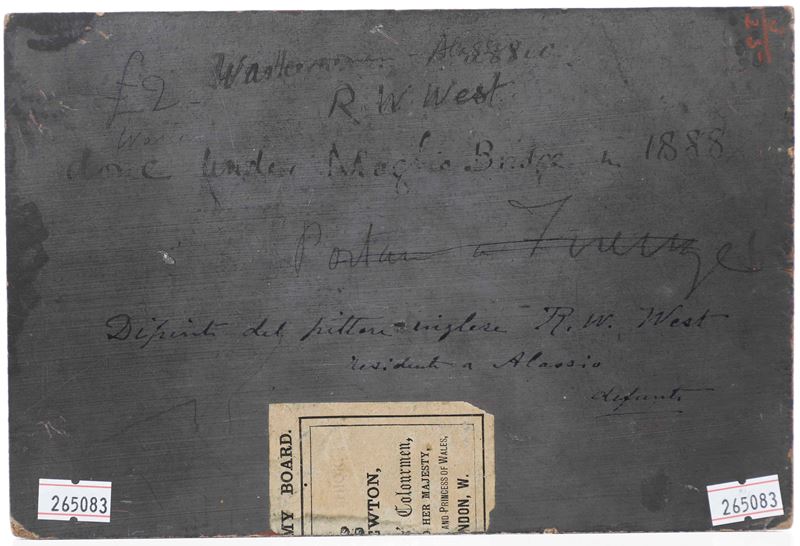 £2 - Washerwomen - Alassio
R. W. West
done under Maglio Bridge in 1888
Portare a Firenze
Dipinti del pittore inglese R. W. West
residente a Alassio
defunto
MY BOARD.
EWTON,
Colourmen,
O HER MAJESTY,
AND PRINCESS OF WALES,
NDON, W.
265083
265083